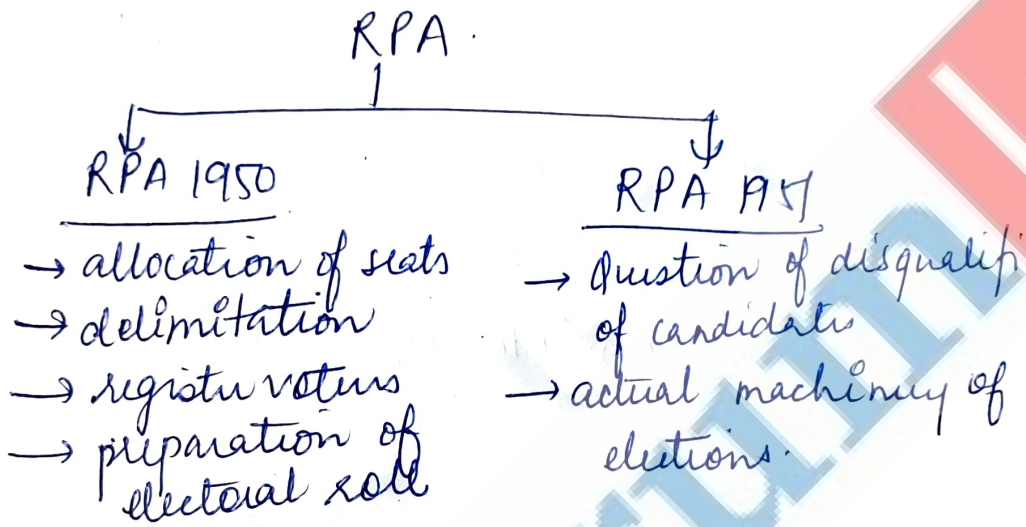 RPA.
RPA 1950
→ allocation of seats
→ delimitation
→ register voters
→ preparation of
electoral roll
RPA 1951
→ Question of disqualifi
of candidates
→ actual machinery of
elections.
um